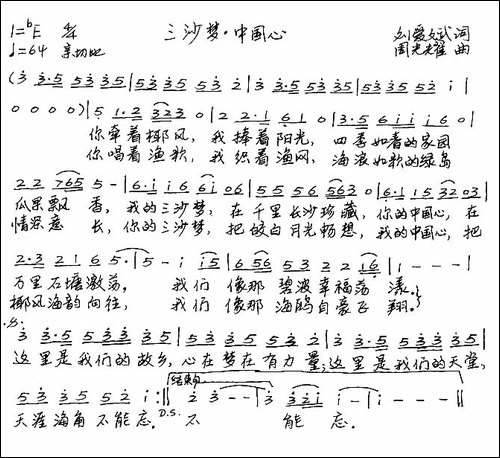 1=ᵇE 三沙梦·中国心 词
♩=64 亲切地 曲
(3 3·5 5335 | 5335 532 | 3 3·5 5335 | 5335 52 1 |
0 0 0 0) | 5 1·2 323 0 | 2 2·1 61 0 | 3·5 6116 0 |
你牵着椰风，我捧着阳光，四季如春的家园
你唱着渔歌，我织着渔网，海浪如歌的绿岛
22 765 5 - | 6·1 16 61 06 | 55 56 563 0 | 6·1 15 32 03 |
瓜果飘香，我的三沙梦，在千里长沙珍藏，你的中国心，在
情深意长，你的三沙梦，把皎白月光畅想，我的中国心，把
2·3 216 5· 5 | 5 - 1 15 | 6 56 53 2 2 16 | 1 - - - |
万里石塘激荡，我们像那碧波幸福荡漾。
椰风海韵向往，我们像那海鸥自豪飞翔。
3 3·5 533 35 | 535 35 532 | 3 3·5 533 35 |
这里是我们的故乡，心在梦在有力量；这里是我们的天堂，
结束句
53 35 52 1 :‖ 2 3 - - | 3 321 1 - | 1 - - - ‖
天涯海角不能忘。D.S. 不能忘。